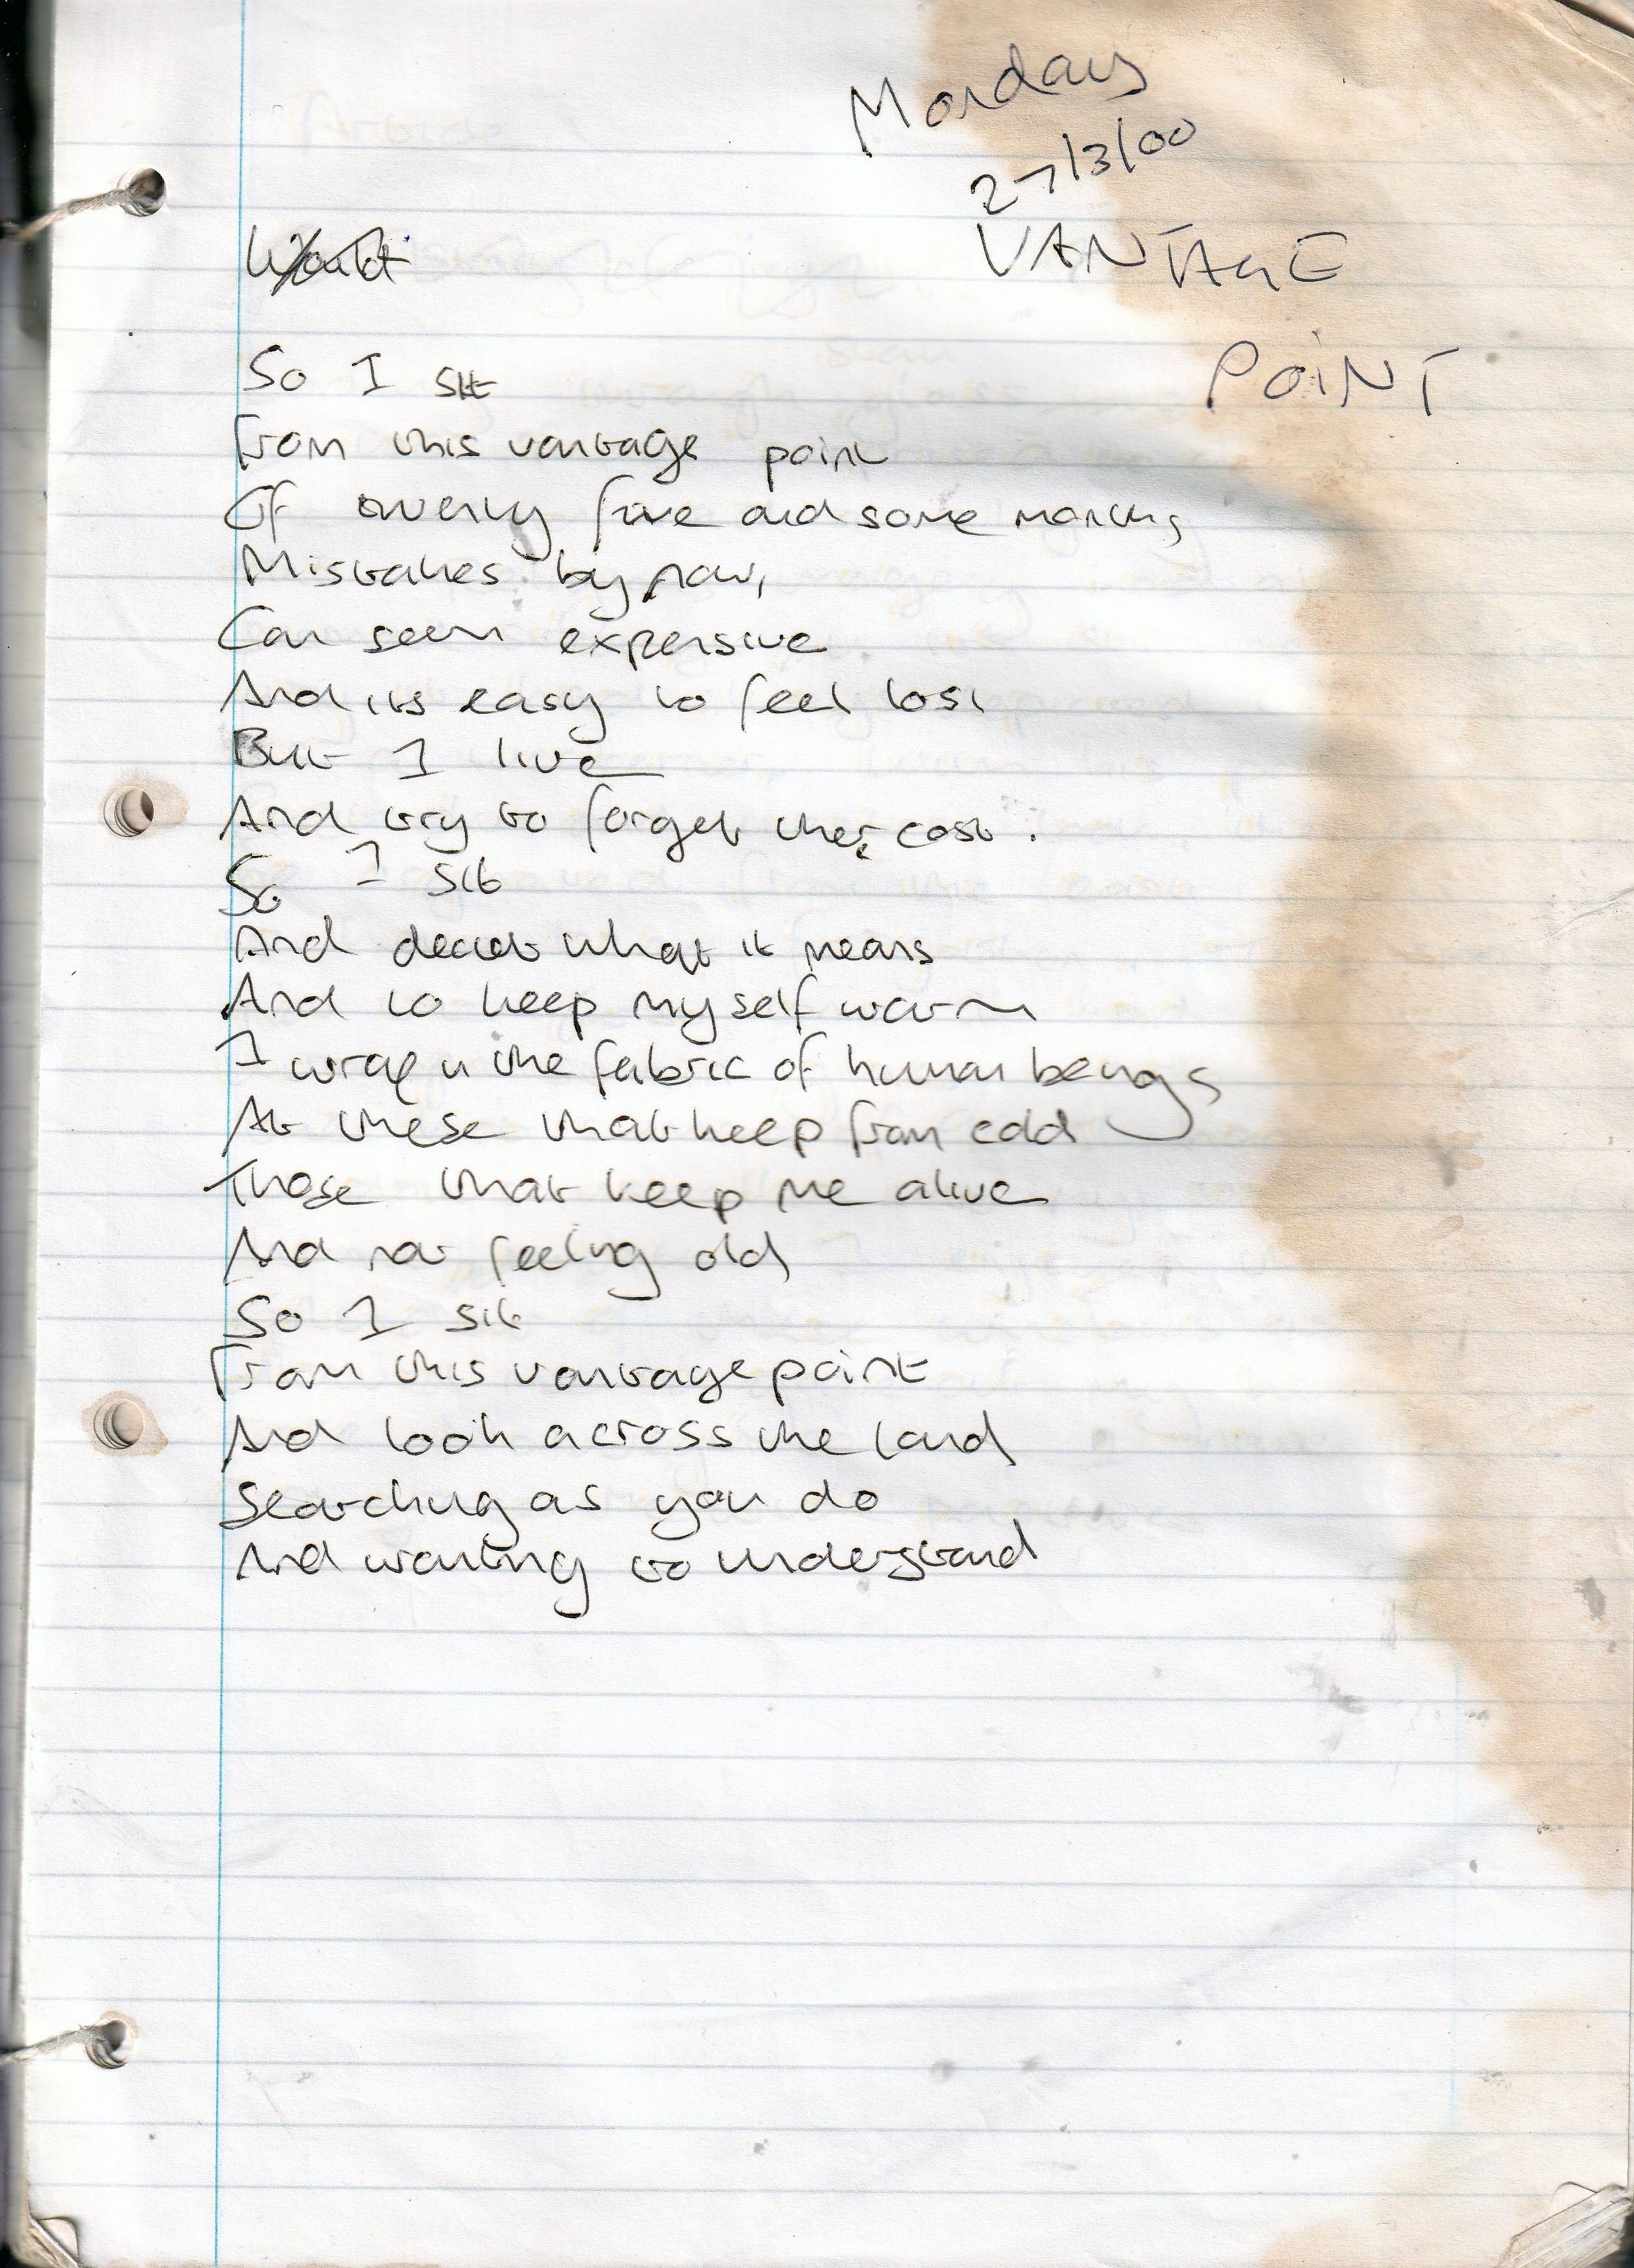 Monday
27/3/00
VANTAGE
POINT
So I sit
From this vantage point
Of twenty five and some months
Mistakes by now,
Can seem expensive
And its easy to feel lost
But I live
And try to forget their cost.
So I sit
And decide what it means
And to keep myself warm
I wrap in the fabric of human beings
At these that keep from cold
Those that keep me alive
And not feeling old
So I sit
From this vantage point
And look across the land
Searching as you do
And wanting to understand